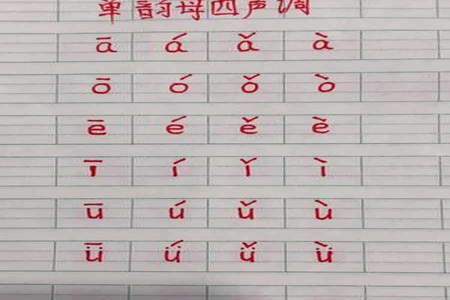 单韵母四声调
ā á ǎ à
ō ó ǒ ò
ē é ě è
ī í ǐ ì
ū ú ǔ ù
ǖ ǘ ǚ ǜ